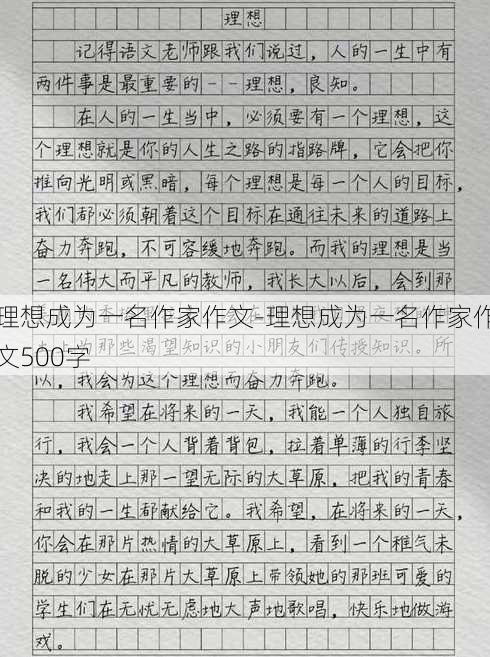 理想
记得语文老师跟我们说过，人的一生中有
两件事是最重要的--理想，良知。
在人的一生当中，必须要有一个理想，这
个理想就是你的人生之路的指路牌，它会把你
推向光明或黑暗，每个理想是每一个人的目标，
我们都必须朝着这个目标在通往未来的道路上
奋力奔跑，不可容缓地奔跑。而我的理想是当
一名伟大而平凡的教师，我长大以后，会到那
理想成为一名作家作文-理想成为一名作家作
上的那些渴望知识的小朋友们传授知识。所
文500字
以，我会为这个理想而奋力奔跑。
我希望在将来的一天，我能一个人独自旅
行，我会一个人背着背包，拉着单薄的行李坚
决的地走上那一望无际的大草原，把我的青春
和我的一生都献给它。我希望，在将来的一天，
你会在那片热情的大草原上，看到一个稚气未
脱的少女在那片大草原上带领她的那班可爱的
学生们在无忧无虑地大声地歌唱，快乐地做游
戏。